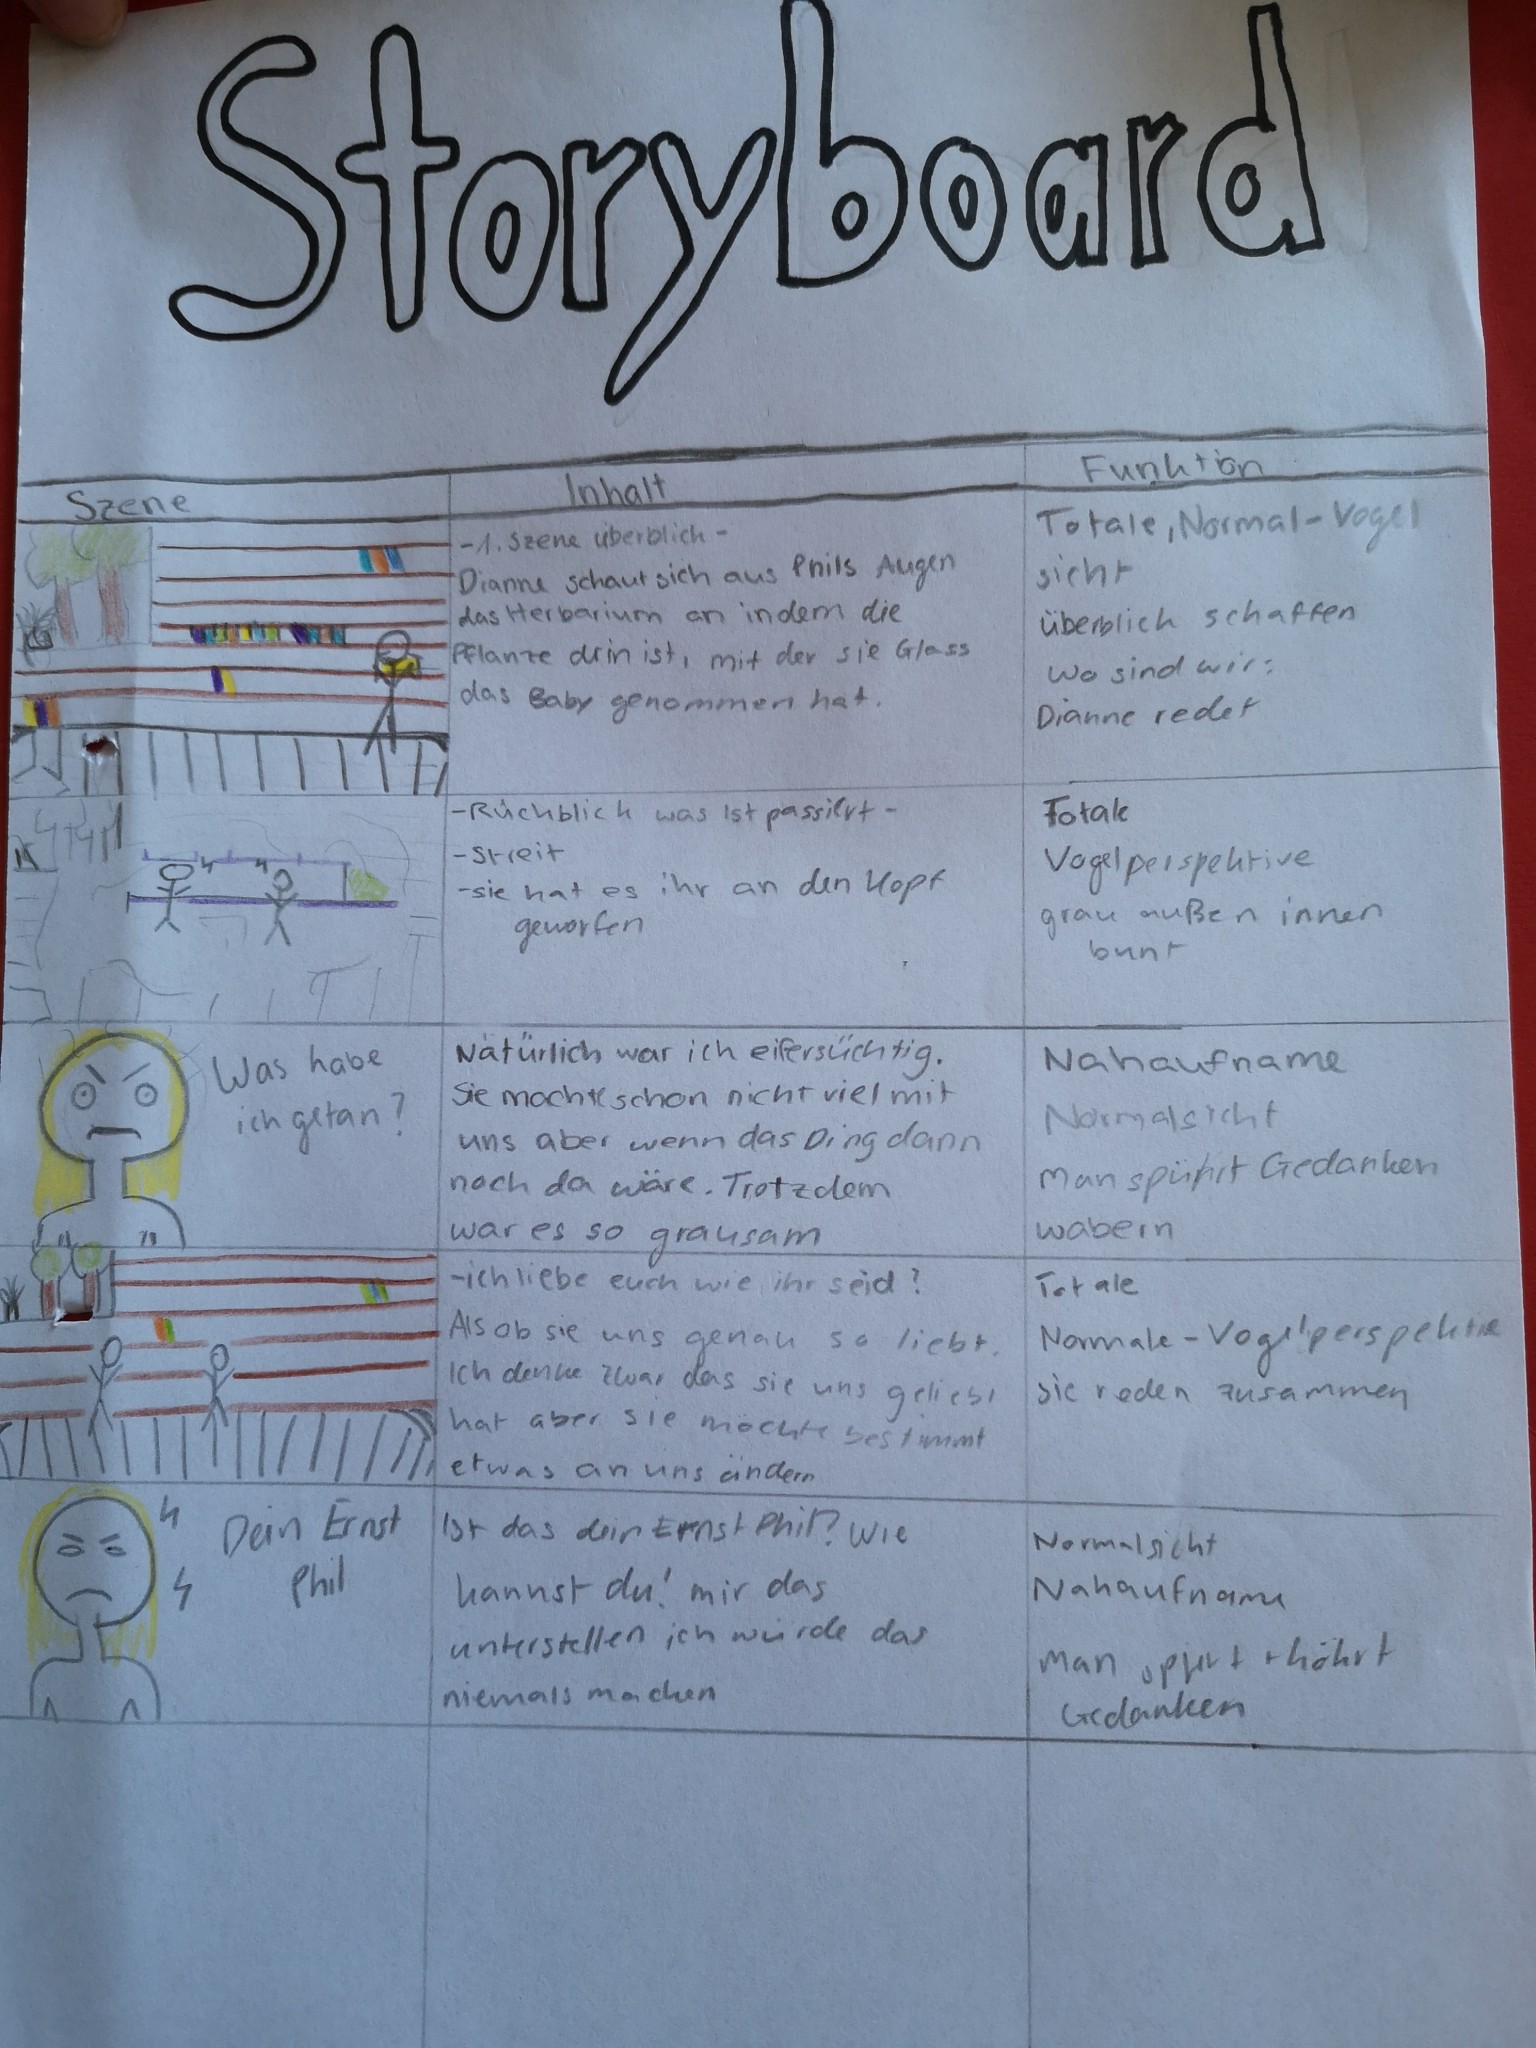 Storyboard
Szene
Inhalt
Funktion
-1. Szene überblich-
Dianne schaut sich aus Phils Augen
das Herbarium an indem die
Pflanze drin ist, mit der sie Glass
das Baby genommen hat.
Totale, Normal-Vogel
sicht
überblich schaffen
wo sind wir:
Dianne redet
-Rüchblich was Ist passiert-
-Streit
-sie hat es ihr an den Kopf
geworfen
Totale
Vogelperspektive
grau außen innen
bunt
Was habe
ich getan?
Natürlich war ich eifersüchtig.
Sie machte schon nicht viel mit
uns aber wenn das Ding dann
noch da wäre. Trotzdem
war es so grausam
Nahaufname
Normalsicht
Man spührt Gedanken
wabern
-ich liebe euch wie ihr seid?
Als ob sie uns genau so liebt.
Ich denke zwar das sie uns geliebt
hat aber sie möchte bestimmt
etwas an uns ändern
Totale
Normale-Vogelperspektive
sie reden zusammen
Dein Ernst
Phil
Ist das dein Ernst Phil? Wie
kannst du! mir das
unterstellen ich würde das
niemals machen
Normalsicht
Nahaufname
Man + höhrt
Gedanken